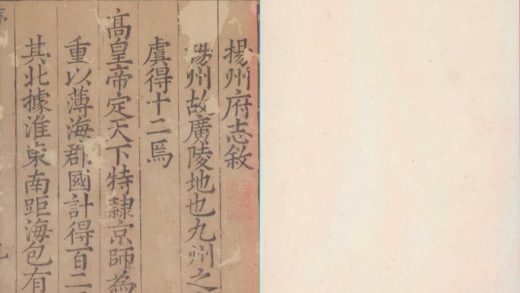 揚州府志敘
揚州故廣陵地也九州之
虞得十二焉
高皇帝定天下特隷京師為
重以薄海郡國計得百二
其北據淮東南距海包有